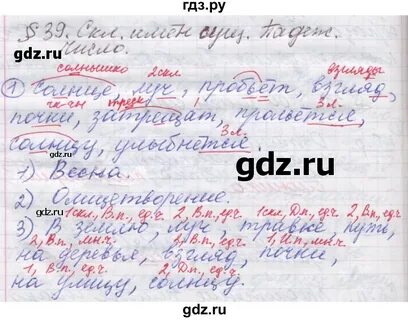 gdz.ru
§ 39. Скл. имён сущ. Падеж.
Число.
солнышко 2скл взгляды
① солнце, луч, пробьёт, взгляд,
чк-чн треск 3л.
почки, затрещат, прольётся,
3л.
солнцу, улыбнётся.
1) Весна.
2) Олицетворение.
1скл, В.п., ед.ч 2, В.п., ед.ч 1скл, Д.п., ед.ч 2, В.п., ед.ч
3) В землю, луч, травке, путь,
2, В.п., мн.ч. 2, В.п., ед.ч. 1, И.п., мн.ч
на деревья, взгляд, почки,
1, В.п., ед.ч 2, Д.п., ед.ч.
на улицу, солнцу.
gdz.ru